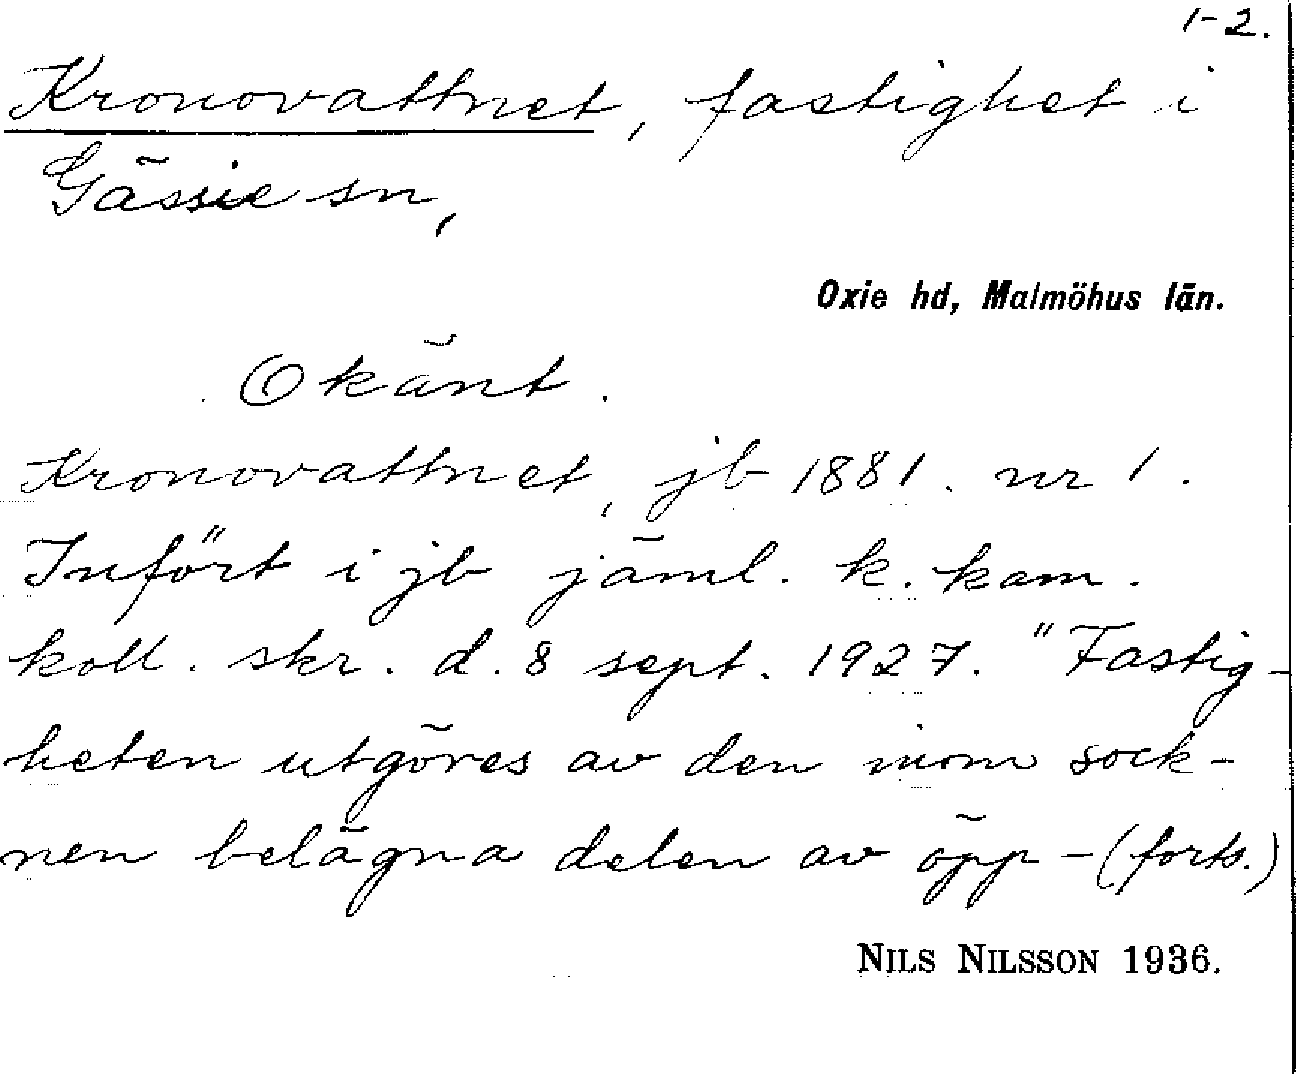 1-2.
Kronovattnet, fastighet i
Gässie sn,
Oxie hd, Malmöhus län.
Okänt.
Kronovattnet, jb 1881. nr 1.
Infört i jb jäml. k. kam.
koll. skr. d. 8 sept. 1927. "Fastig-
heten utgöres av den inom sock-
nen belägna delen av öpp- (forts.)
NILS NILSSON 1936.